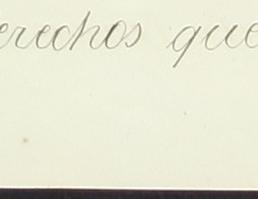 erechos que